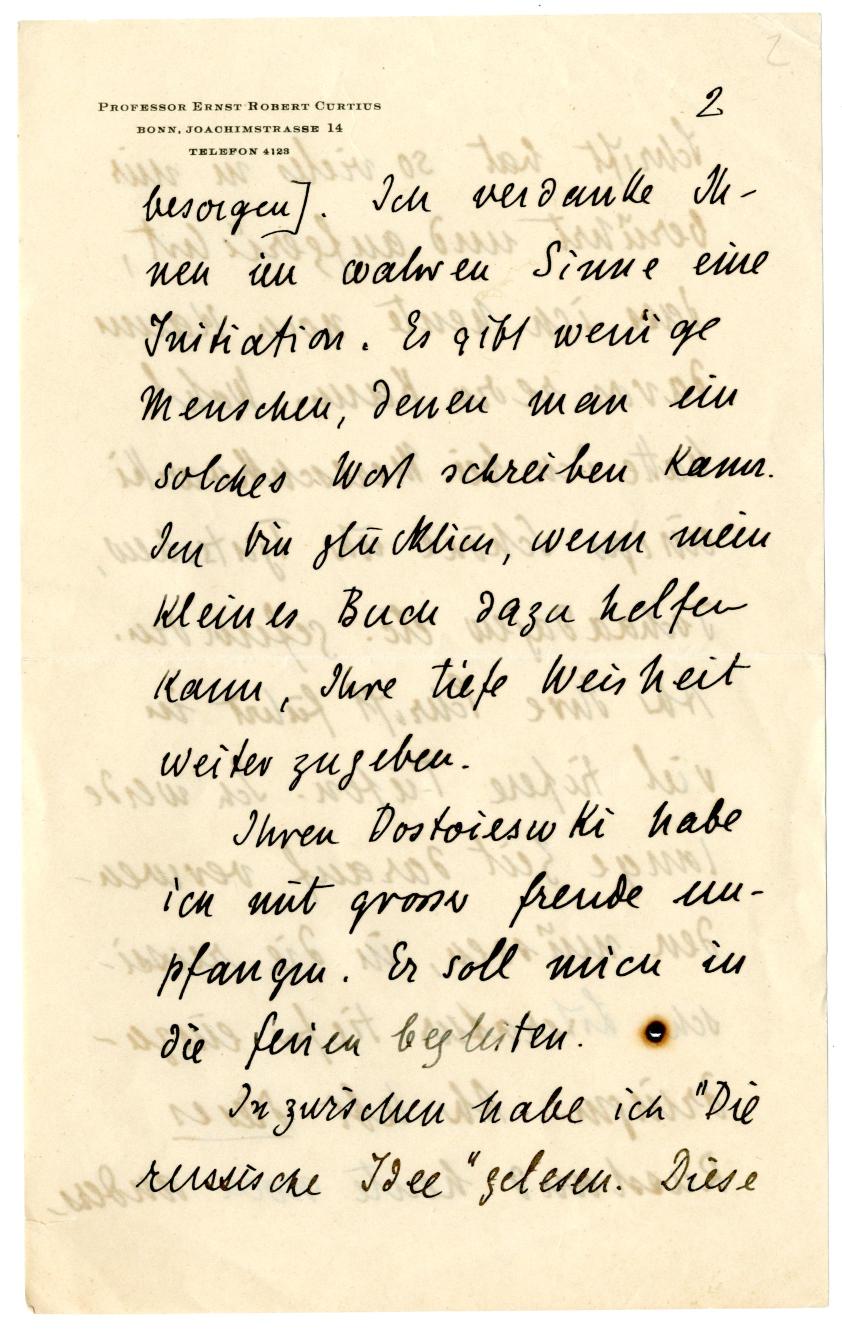 2
PROFESSOR ERNST ROBERT CURTIUS
BONN, JOACHIMSTRASSE 14
TELEFON 4123
2
besorgen]. Ich verdanke Ih-
nen im wahren Sinne eine
Initiation. Es gibt wenige
Menschen, denen man ein
solches Wort schreiben kann.
Ich bin glücklich, wenn mein
kleines Buch dazu helfen
kann, Ihre tiefe Weisheit
weiter zugeben.
Ihren Dostoiewski habe
ich mit grosser Freude em-
pfangen. Er soll mich in
die Ferien begleiten.
Inzwischen habe ich "Die
russische Idee" gelesen. Diese